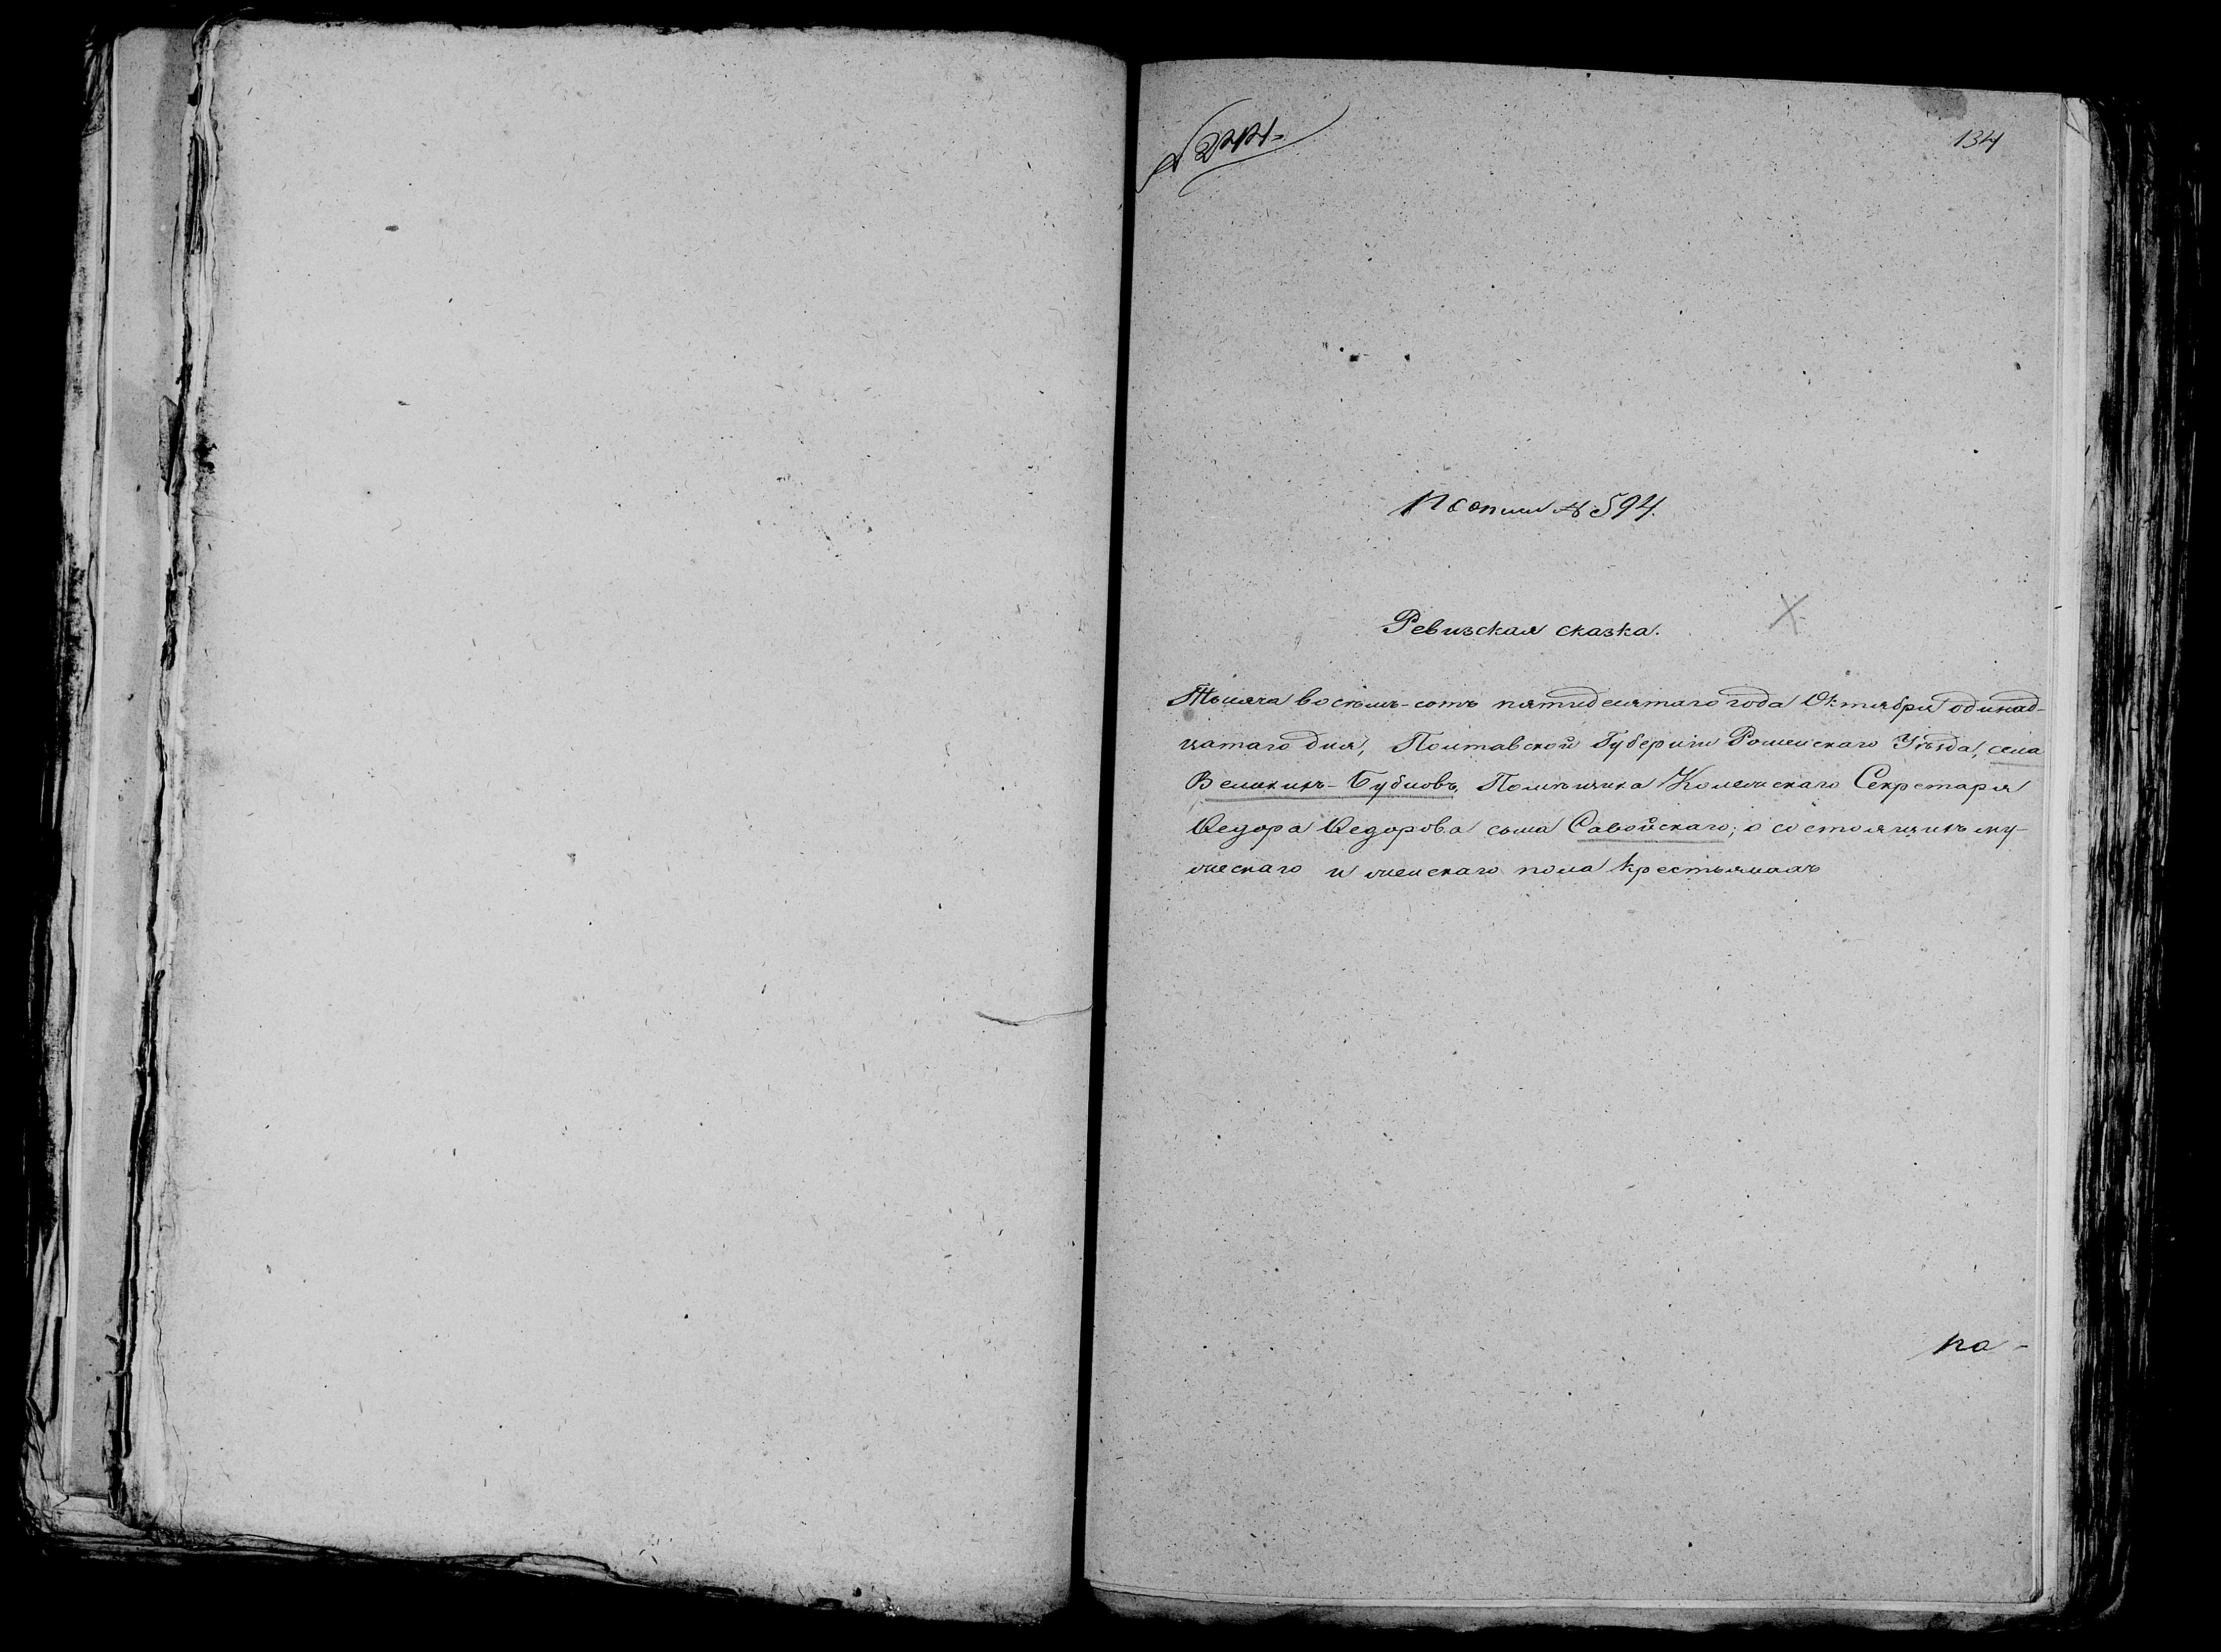 134
По описи № 594.
Ревизская сказка.
Тысяча восемь-сотъ пятидесятаго года Октября одинад-
цатаго дня, Полтавской Губерніи Роменскаго Уѣзда, села
Великихъ-Бубновъ, Помѣщика Колежскаго Секретаря
Ѳедора Ѳедорова сына Савойскаго; о состоящихъ му-
жескаго и женскаго пола крестьянахъ
по-